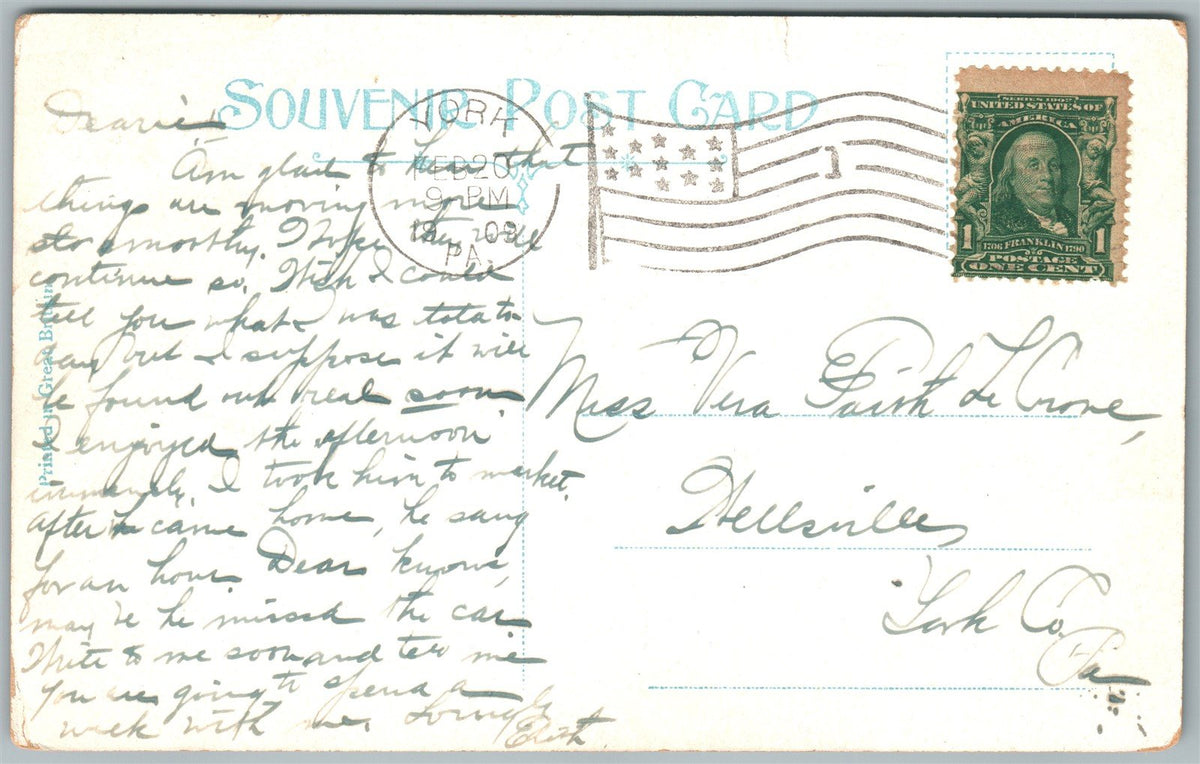 SOUVENIR POST CARD
Dearie,
Am glad to hear that
things are moving more
smoothly. I hope they will
continue so. Wish I could
tell you what I was told to-
day but I suppose it will
be found out real soon
I enjoyed the afternoon
immensely. I took him to market.
After he came home, he sang
for an hour. Dear knows,
may be he missed the car.
Write to me soon and tell me
you are going to spend a
week with me. Lovingly
Edith
Printed in Great Britain
YORK
FEB 20
9 - PM
1909
PA.
1
SERIES 1902
UNITED STATES OF
AMERICA
1706 FRANKLIN 1790
1 POSTAGE 1
ONE CENT
Miss Vera Faith Le Crone,
Wellsville,
York Co.
Pa.